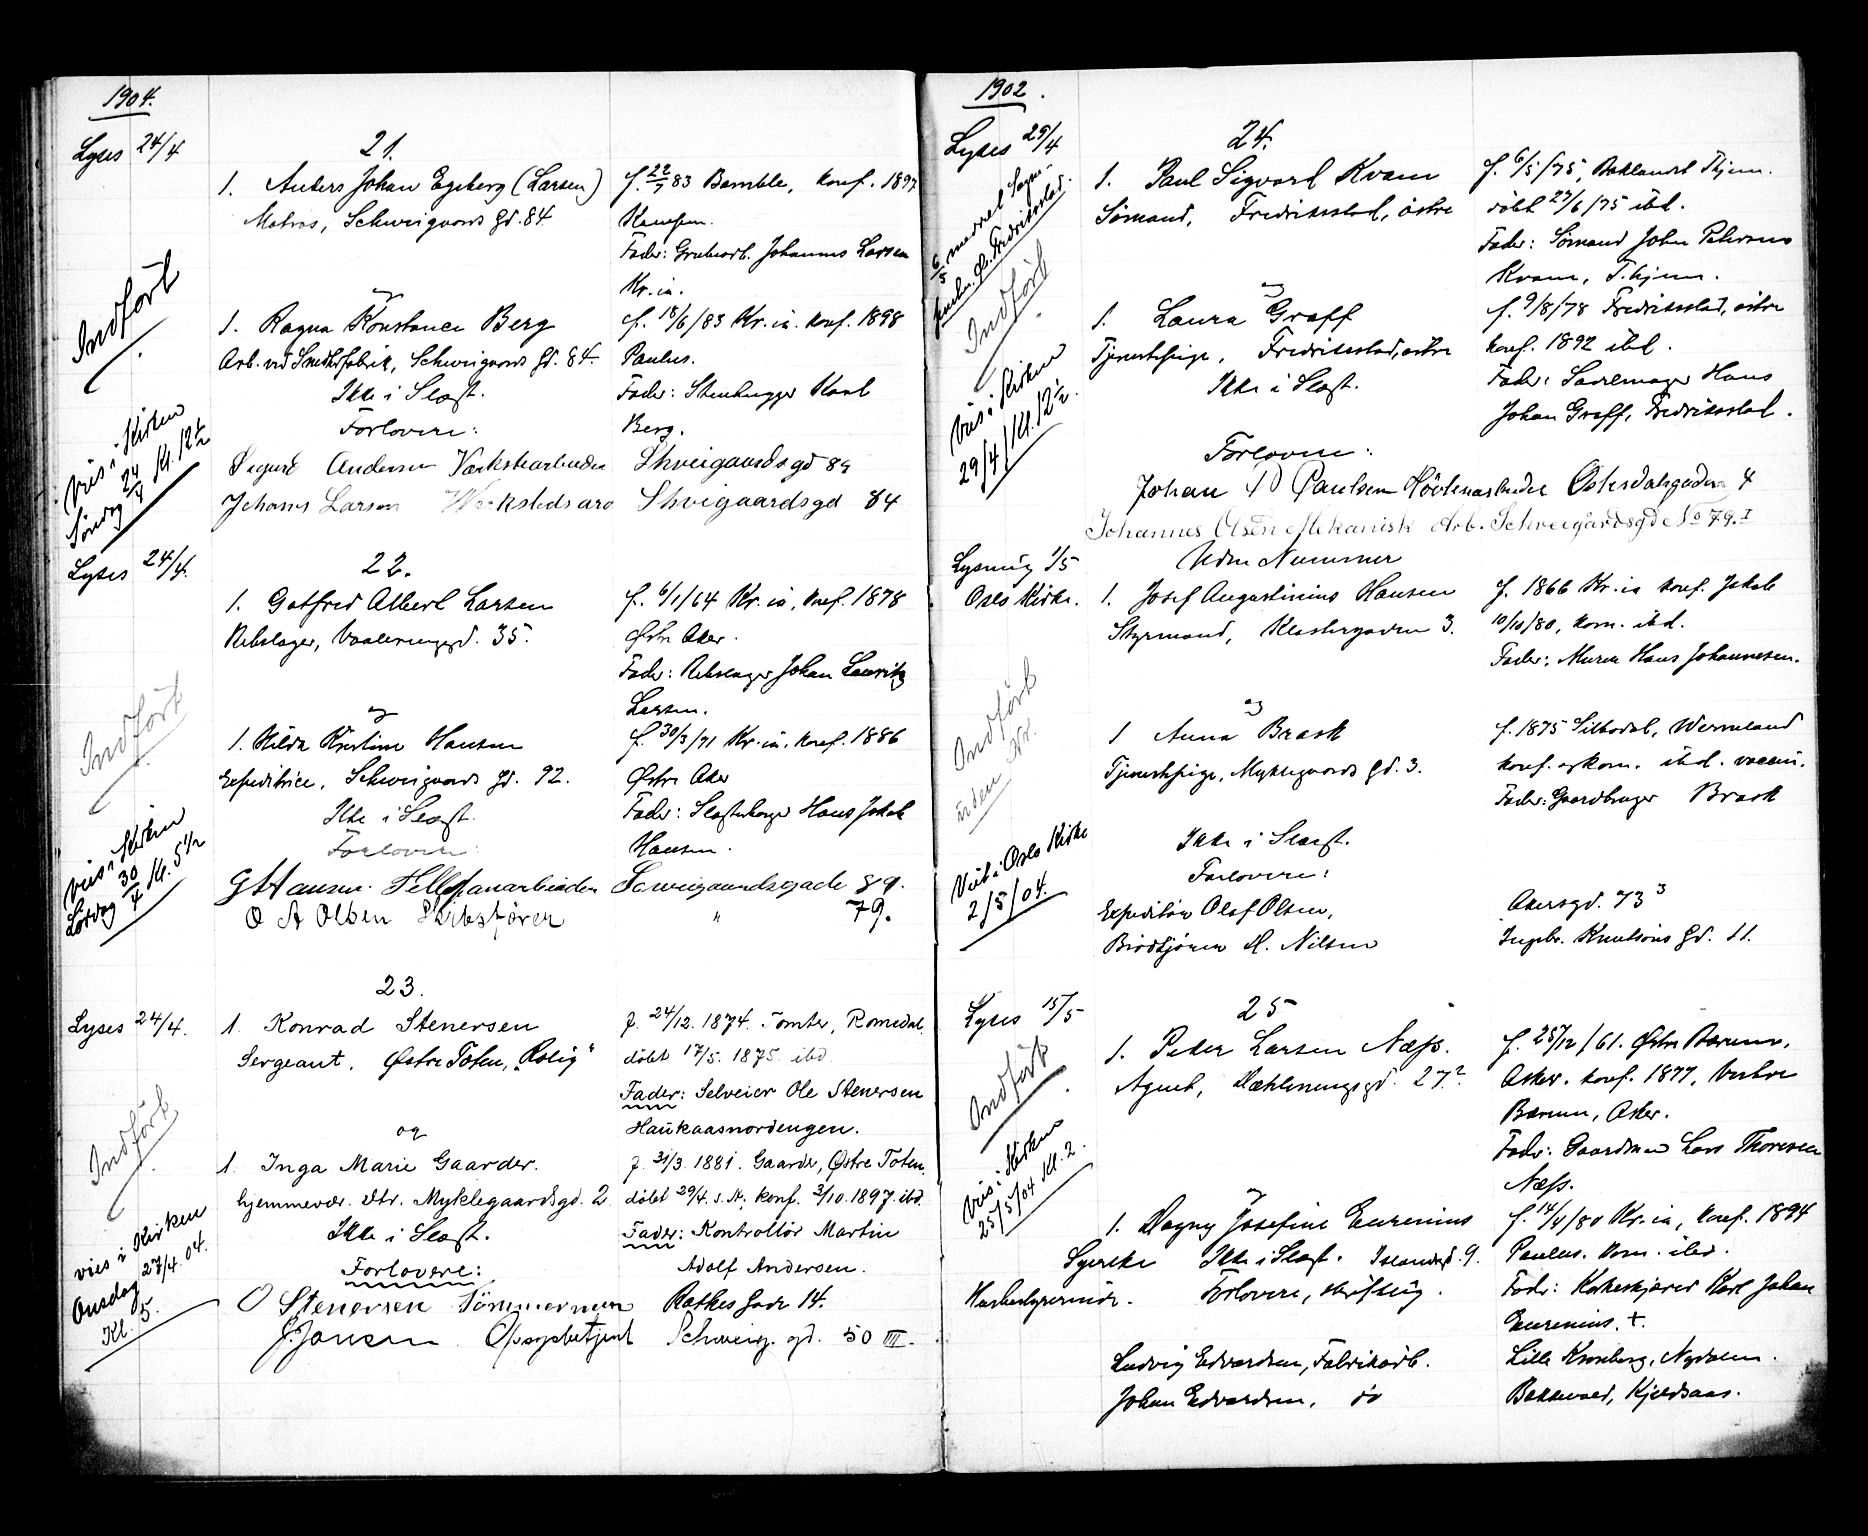 1904.
Lyses 24/4
21.
1. Anders Johan Egeberg (Larsen)
f. 22/7 83 Bamble, konf. 1897
Matros, Schweigaards gd. 84
Kampen.
Fader: Grubearb. Johannes Larsen
Kr.ia.
Indført
og
1. Ragna Konstance Berg
f. 18/6/83 Kr.ia. konf. 1898
Arb. ved fabrik, Schweigaards gd. 84.
Paulus.
Ikke i Slægt.
Fader: Stenhugger Karl
Berg.
Forlovere:
Vies i Kirken
Søndag 24/4 Kl. 12½
Sigurd Andersen Værkstearbeider Shveigaardsgd 89
Johans Larsen Shveigaardsgd 84
Lyses 24/4.
22.
1. Gotfred Albert Larsen
f. 6/1/64 Kr.ia, konf. 1878
Rebslager, Vaalerenggd. 35.
Østre Aker.
Fader: Rebslager Johan Lauritz
Larsen.
Indført
og
1. Hilda Kristine Hansen
f. 30/3/71 Kr.ia. konf. 1886
Expeditrice, Schweigaards gd. 92.
Østre Aker
Ikke i Slægt.
Fader: Hans Jakob
Hansen.
Forlovere:
Vies i Kirken
Lørdag 30/4 Kl. 5 1/2
G Hansen. 89.
O A Olsen Skibsfører " 79.
23.
Lyses 24/4.
1. Konrad Stenersen
f. 24/12. 1874. Tomter, Romedal.
Sergeant. Østre Toten, „Rolig“
døbt 17/5. 1875. ibd.
Fader: Selveier Ole Stenersen
Haukaasnordengen.
Indført
og
1. Inga Marie Gaarder.
f. 31/3. 1881. Gaarder, Østre Toten.
hjemmevær. dtr. Myklegaardsgd. 2
døbt 29/4. s. A; konf. 3/10. 1897. ibd.
Ikke i Slægt.
Fader: Kontrollør Martin
Adolf Andersen.
vies i Kirken
Onsdag 27/4. 04.
Kl. 5.
Forlovere:
O Stenersen Tømmerman Ratkes Gade 14.
J. Jansen Opsynbetjent Schweig. gd. 50 III.
1902.
Lyses 29/4
24.
1. Paul Sigvard Kvam
f. 6/5/75, Baklandet Thjem.
Sømand, Fredriksstad, østre
døbt 27/6/75 ibd.
Fader: Sømand John Petersens
Kvam, T.hjem.
Indført
og
1. Laura Graff
f. 9/8/78 Fredriksstad, østre
Tjenestepige, Fredriksstad, østre
konf. 1892 ibd.
Ikke i Slægt.
Fader: Sadelmager Hans
Johan Graff, Fredriksstad.
Vies i Kirken
29/4/ Kl. 12½.
Forlovere:
Johan D Paulsen Høvlerarbeider Østerdalsgaden 4
Johannes Olsen Mekanisk Arb. Schweigårdsgd No 79. I
Lysning 1/5
Oslo Kirke.
Uden Nummer
1. Josef Augustinius Hansen
f. 1866 Kr.ia konf. Jakob
Styrmand, Klostergaden 3.
10/10/80, kom. ibd.
Fader: Murer Hans Johannesen.
Indført
uden Nr.
og
1 Anna Brask
f. 1875 Silbodal, Wermland
Tjenestepige, Myklegaards gd. 3.
konf. og kom. ibd. vaccin.
Fader: Gaardbruger Brask
Ikke i Slægt.
Forlovere:
Viet i Oslo Kirke
2/5/04.
Expeditør Olaf Olsen,
Akersgd. 73 3
Brødkjører H. Nilsen
Ingebr. Knutsøns gd. 11.
Lyses 15/5
25
1. Peder Larsen Næss.
f. 25/12/61. Østre Bærum,
Agent, Dæhleneng gd. 27.2
Asker. konf. 1877, Vestre
Bærum, Asker.
Fader: Gaardman Lars Thoresen
Næss.
Indført
Vies i Kirken
25/5/04 Kl. 2.
og
1. Dagny Josefine Eurenius
f. 14/4/80 Kr.ia, konf. 1894
Syerske Ikke i Slægt. Islandsgd. 9.
Paulus. kom. ibd.
Forlovere, skriftlig.
Fader: Karl Johan
Eurenius. +.
Ludvig Edvardsen, Fabrikarb.
Lille Kronborg, Nydalen.
Johan Edvardsen, do
Bakkevold, Kjeldsaas.